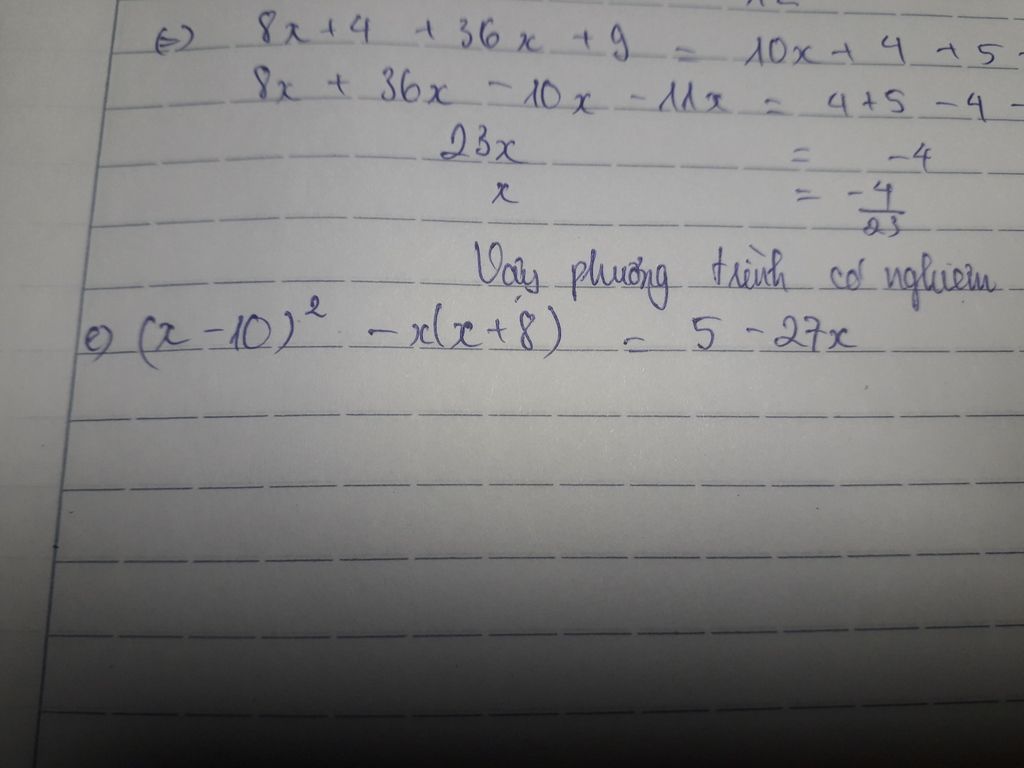 ⇔) 8x+4 +36x +9 = 10x+4 +5
8x + 36x - 10x - 11x = 4+5 -4 -
23x = -4
x = -4/23
Vậy phương trình có nghiệm
e) (x -10)² - x(x+8) = 5 - 27x